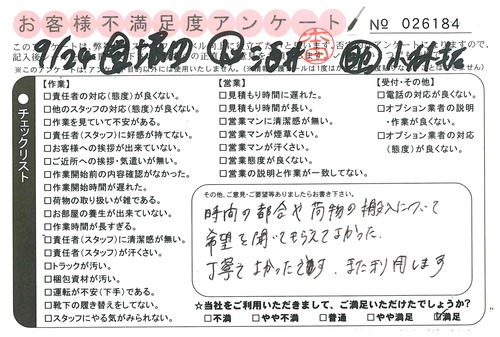 お客様不満足度アンケート
No 026184
※このアンケートは、
チェックリスト
【作業】
□責任者の対応(態度)が良くない。
□他のスタッフの対応(態度)が良くない。
□作業を見ていて不安がある。
□責任者(スタッフ)に好感が持てない。
□お客様への挨拶が出来ていない。
□ご近所への挨拶・気遣いが無い。
□作業開始前の内容確認がなかった。
□作業開始時間が遅れた。
□荷物の取り扱いが雑である。
□お部屋の養生が出来ていない。
□作業時間が長すぎる。
□責任者(スタッフ)に清潔感が無い。
□責任者(スタッフ)が汗くさい。
□トラックが汚い。
□梱包資材が汚い。
□運転が不安(下手)である。
□靴下の履き替えをしてない。
□スタッフにやる気がみられない。
【営業】
□見積もり時間に遅れた。
□見積もり時間が長い。
□営業マンに清潔感が無い。
□営業マンが煙草くさい。
□営業マンが汗くさい。
□営業態度が良くない。
□営業の説明と作業が一致してない。
【受付・その他】
□電話の対応が良くない。
□オプション業者の説明
・作業が良くない。
□オプション業者の対応
(態度)が良くない。
その他、ご意見・ご要望等ありましたらお書き下さい。
時間の都合や荷物の搬入について
希望を聞いてもらえてよかった.
丁寧でよかったです. また利用します
☆当社をご利用いただきまして、ご満足いただけたでしょうか?
□不満 □やや不満 □普通 □やや満足 ☑満足